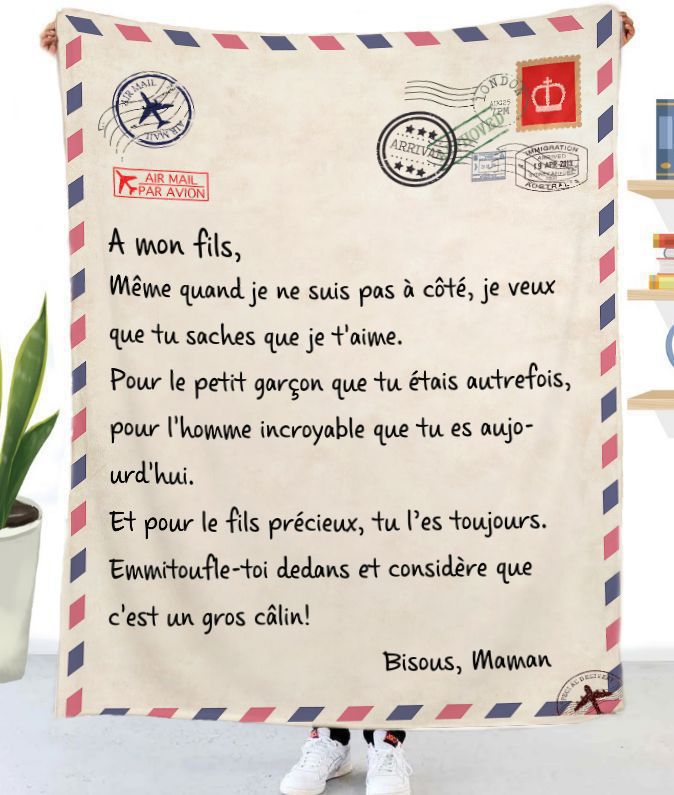 AIR MAIL
AIR MAIL
LONDON
AUG 25
7PM
ARRIVAL
APPROVED
IMMIGRATION
ARRIVED
19 APR 2011
AUSTRALIA
AIR MAIL
PAR AVION
A mon fils,
Même quand je ne suis pas à côté, je veux
que tu saches que je t'aime.
Pour le petit garçon que tu étais autrefois,
pour l'homme incroyable que tu es aujo-
urd'hui.
Et pour le fils précieux, tu l'es toujours.
Emmitoufle-toi dedans et considère que
c'est un gros câlin!
Bisous, Maman
SPECIAL DELIVERY